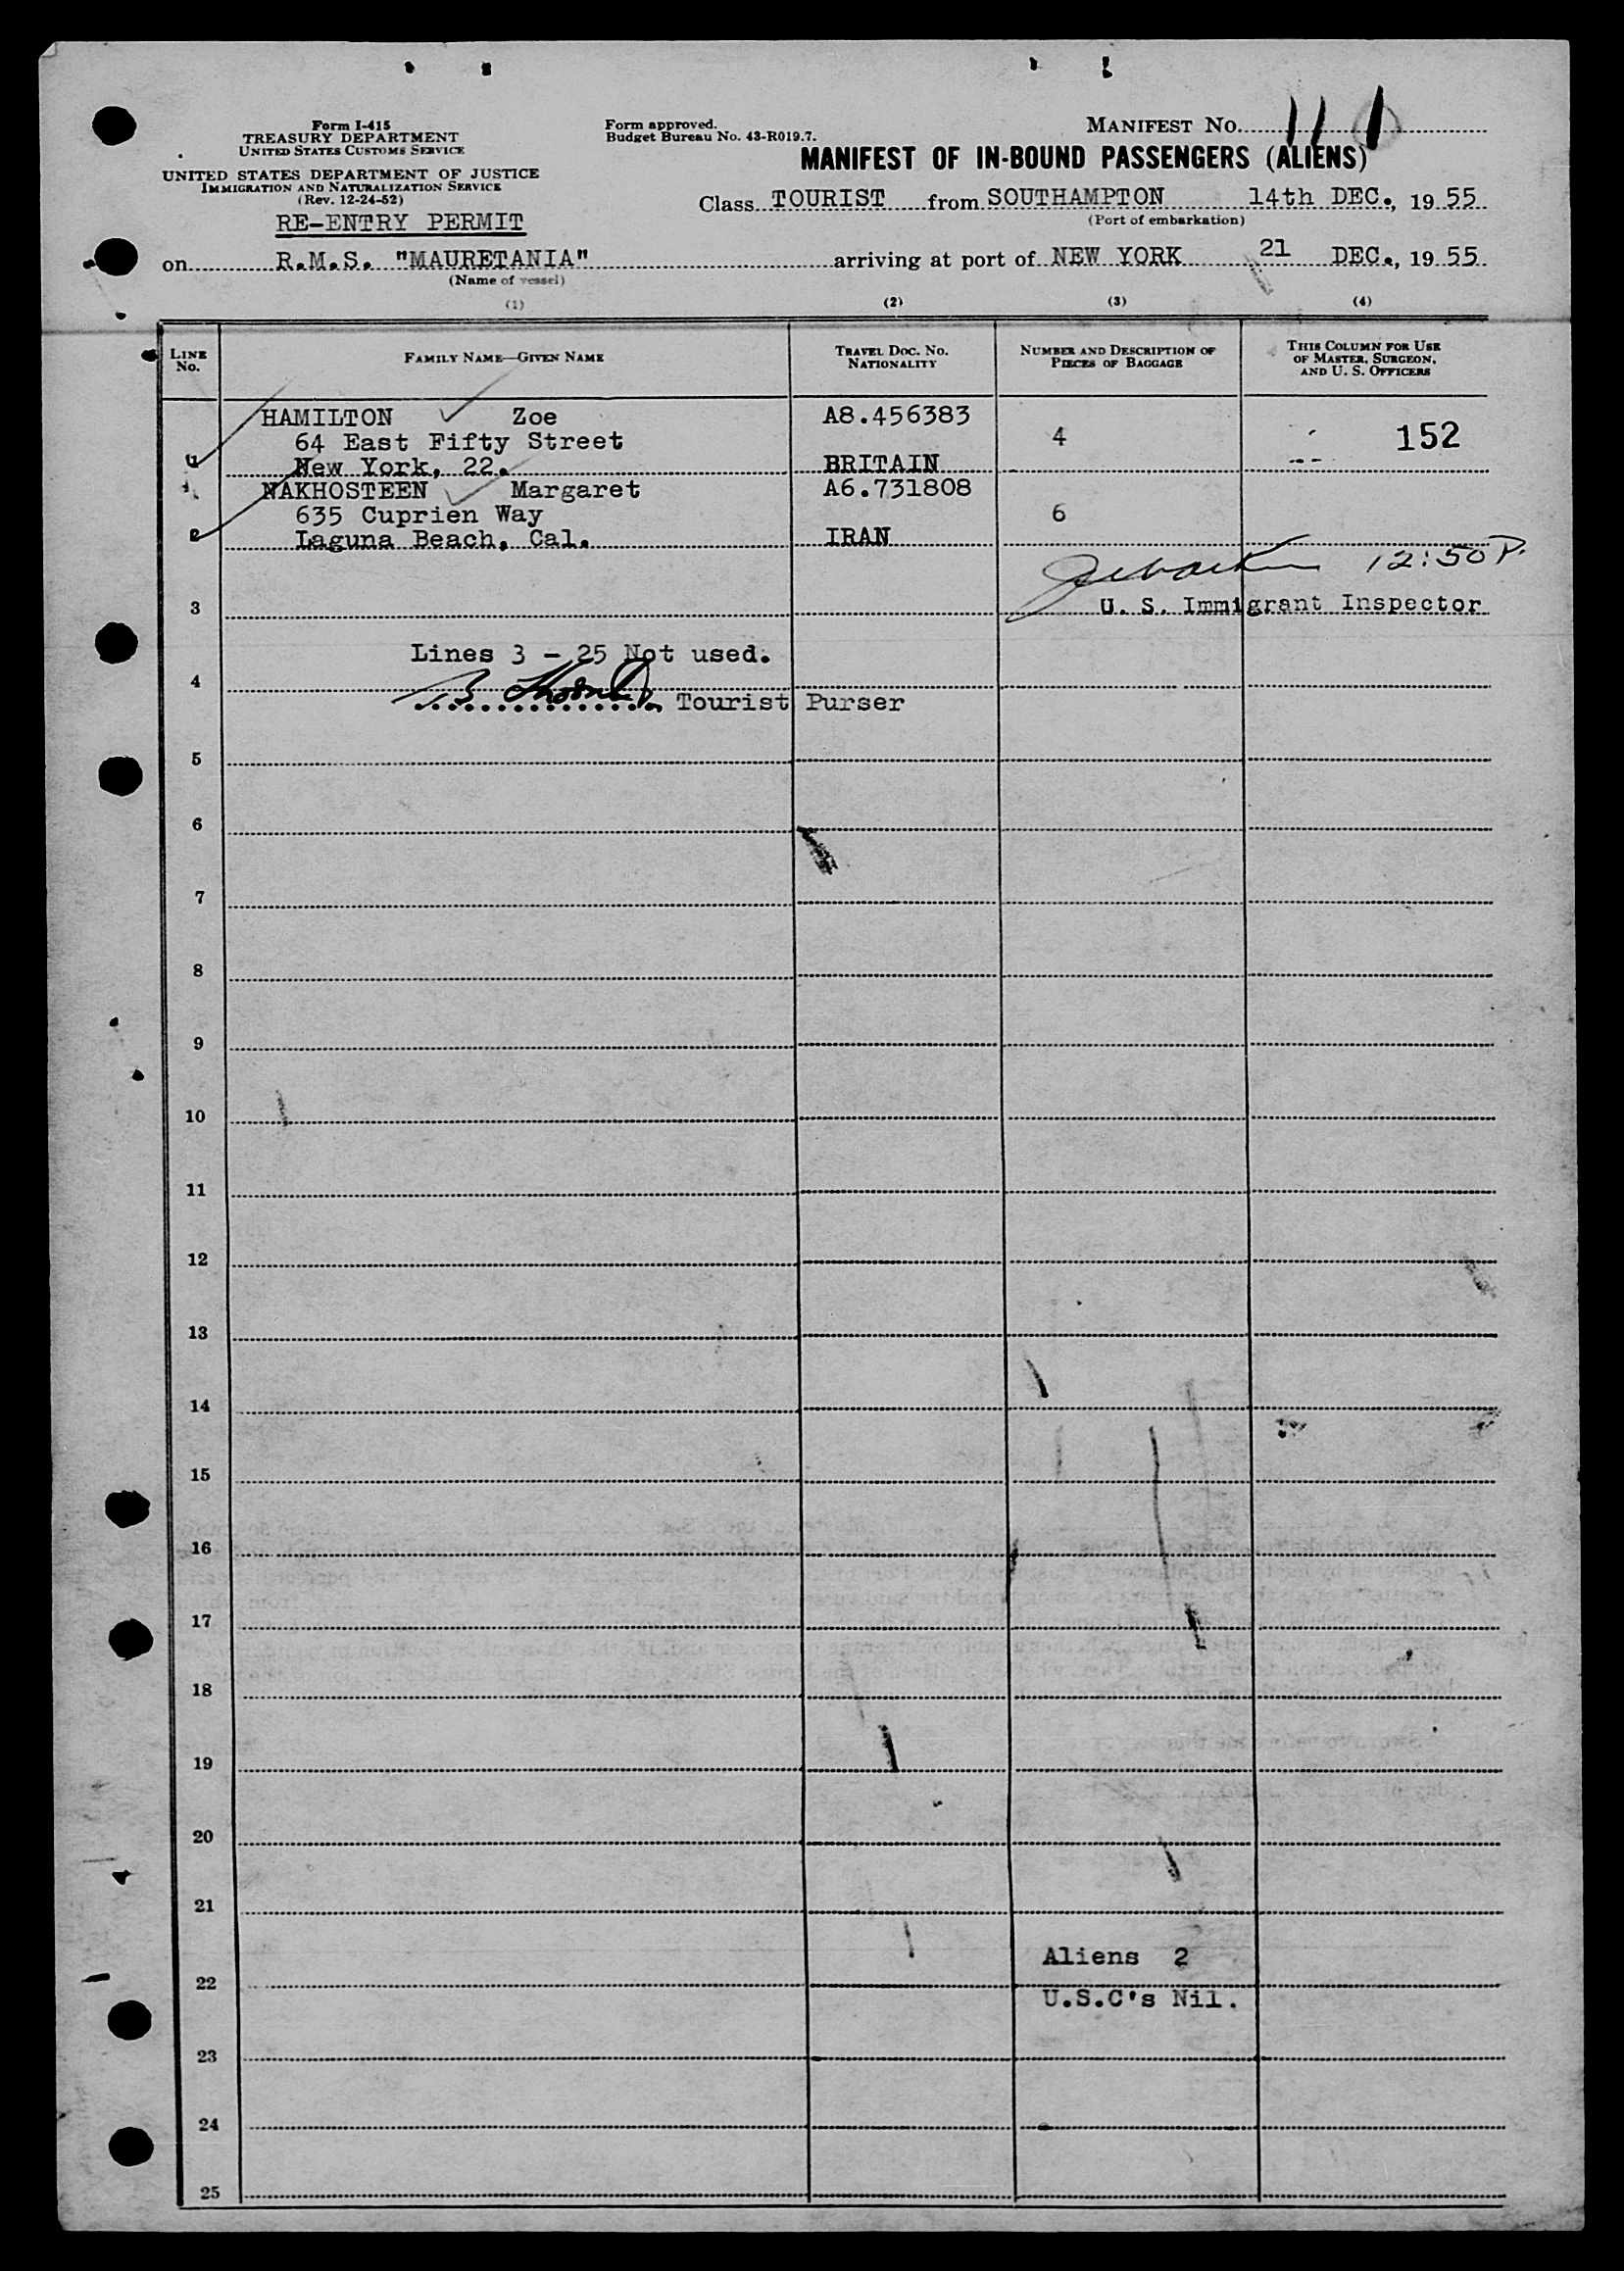 Form I-415
TREASURY DEPARTMENT
UNITED STATES CUSTOMS SERVICE
UNITED STATES DEPARTMENT OF JUSTICE
IMMIGRATION AND NATURALIZATION SERVICE
(Rev. 12-24-52)
RE-ENTRY PERMIT
Form approved.
Budget Bureau No. 43-R019.7.
MANIFEST NO.
MANIFEST OF IN-BOUND PASSENGERS (ALIENS)
Class TOURIST from SOUTHAMPTON 14th DEC., 1955
(Port of embarkation)
on R.M.S. "MAURETANIA" arriving at port of NEW YORK 21 DEC., 1955
(Name of vessel)
(1) (2) (3) (4)
LINE NO.
FAMILY NAME—GIVEN NAME
TRAVEL DOC. NO.
NATIONALITY
NUMBER AND DESCRIPTION OF
PIECES OF BAGGAGE
THIS COLUMN FOR USE
OF MASTER, SURGEON,
AND U. S. OFFICERS
HAMILTON Zoe A8.456383
64 East Fifty Street 4 152
1 New York, 22. BRITAIN
NAKHOSTEEN Margaret A6.731808
635 Cuprien Way 6
2 Laguna Beach, Cal. IRAN
12:50 P.
3 U. S. Immigrant Inspector
Lines 3 - 25 Not used.
4
Tourist Purser
5
6
7
8
9
10
11
12
13
14
15
16
17
18
19
20
21
Aliens 2
22
U.S.C's Nil.
23
24
25